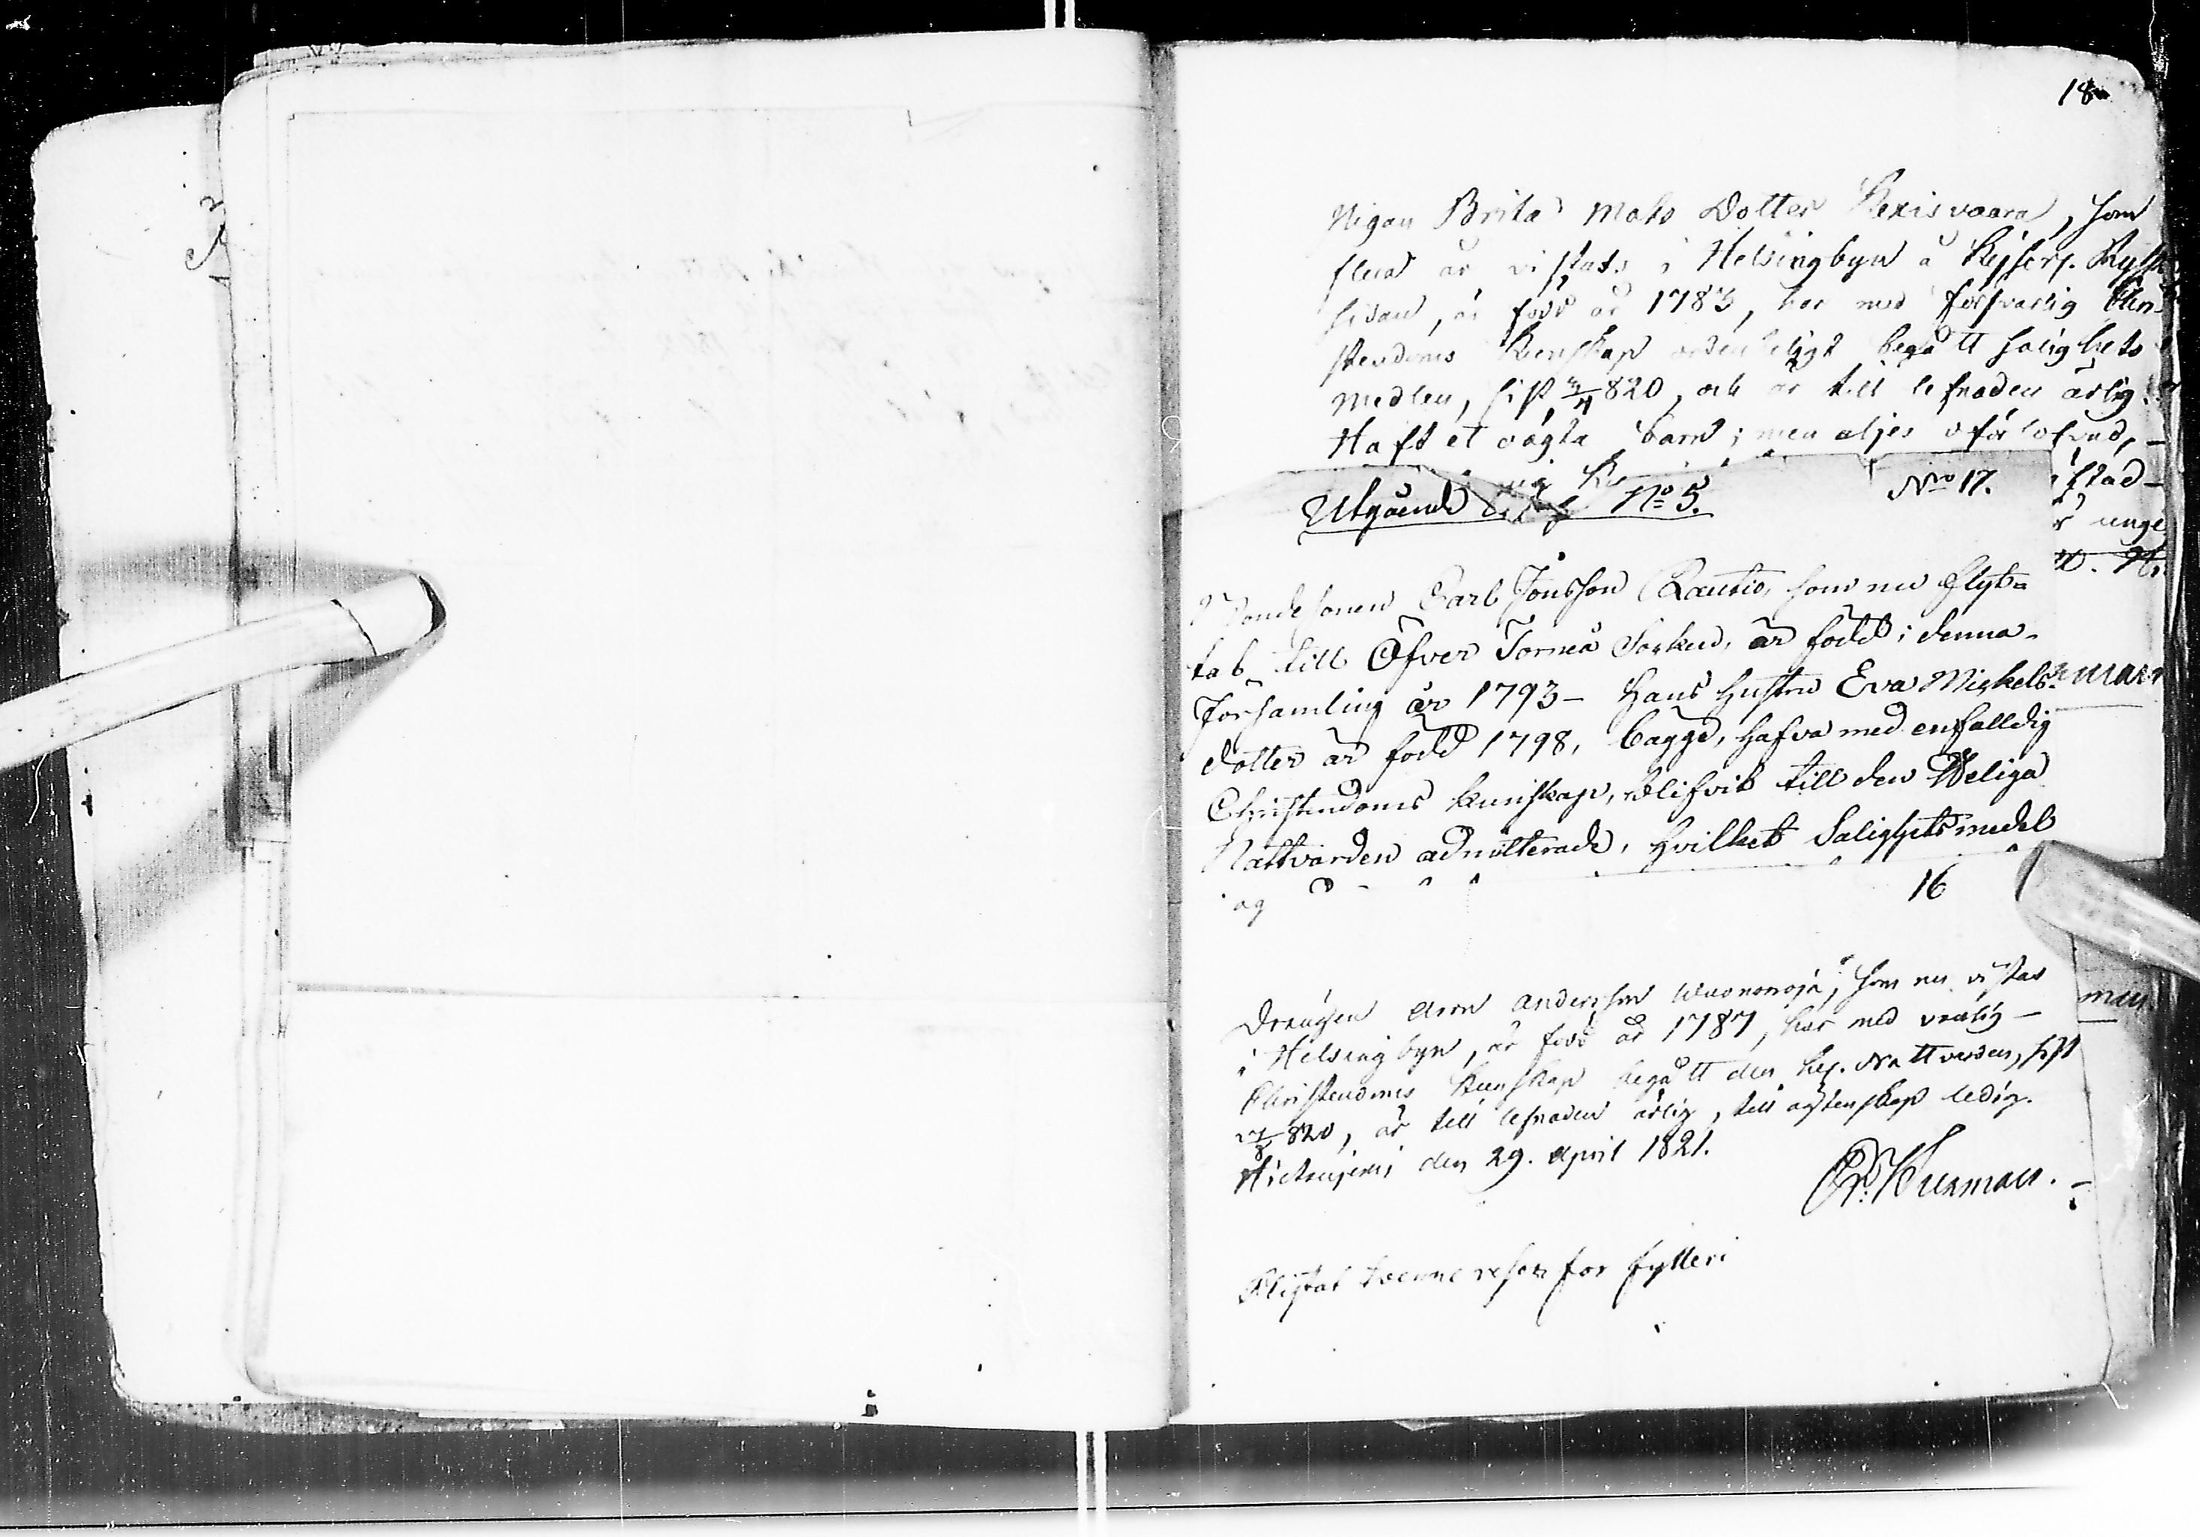 18
Pigan Brita Mats Dotter Kexisvaara, som
flera år vistats i Helsingbyn å Kejserl. Ryska
sidan, är född år 1783, har med försvarlig Chri-
stendoms kunskap ordentligt begått salighets
medlen, sist 820, och är till lefnaden ärlig.
Haft et oägta barn; men eljes oförlofvad,
stad-
unge
Utgående No 5. Nro 17.
Bondesonen Carl Jonsson Rautio, som nu flyt-
tat till Öfver Torneå Socken, är född i denna
Församling år 1793 – hans hustru Eva Mickels-
dotter är född 1798, bägge, hafva med enfalldig
Christendoms kunskap, blifvit till den Heliga
Nattvarden admitterade, hvilket Salighetsmedel
16
Drängen Aron Andersson Wuonoroja, som nu vistas
i Helsingbyn, är född år 1787, har med vanlig
Christendoms kunskap begått den hel. Nattvarden, sist
820, är till lefnaden ärlig, till ägtenskap ledig.
Hietaniemi den 29. April 1821.
Pligtat tvenne resor för fylleri